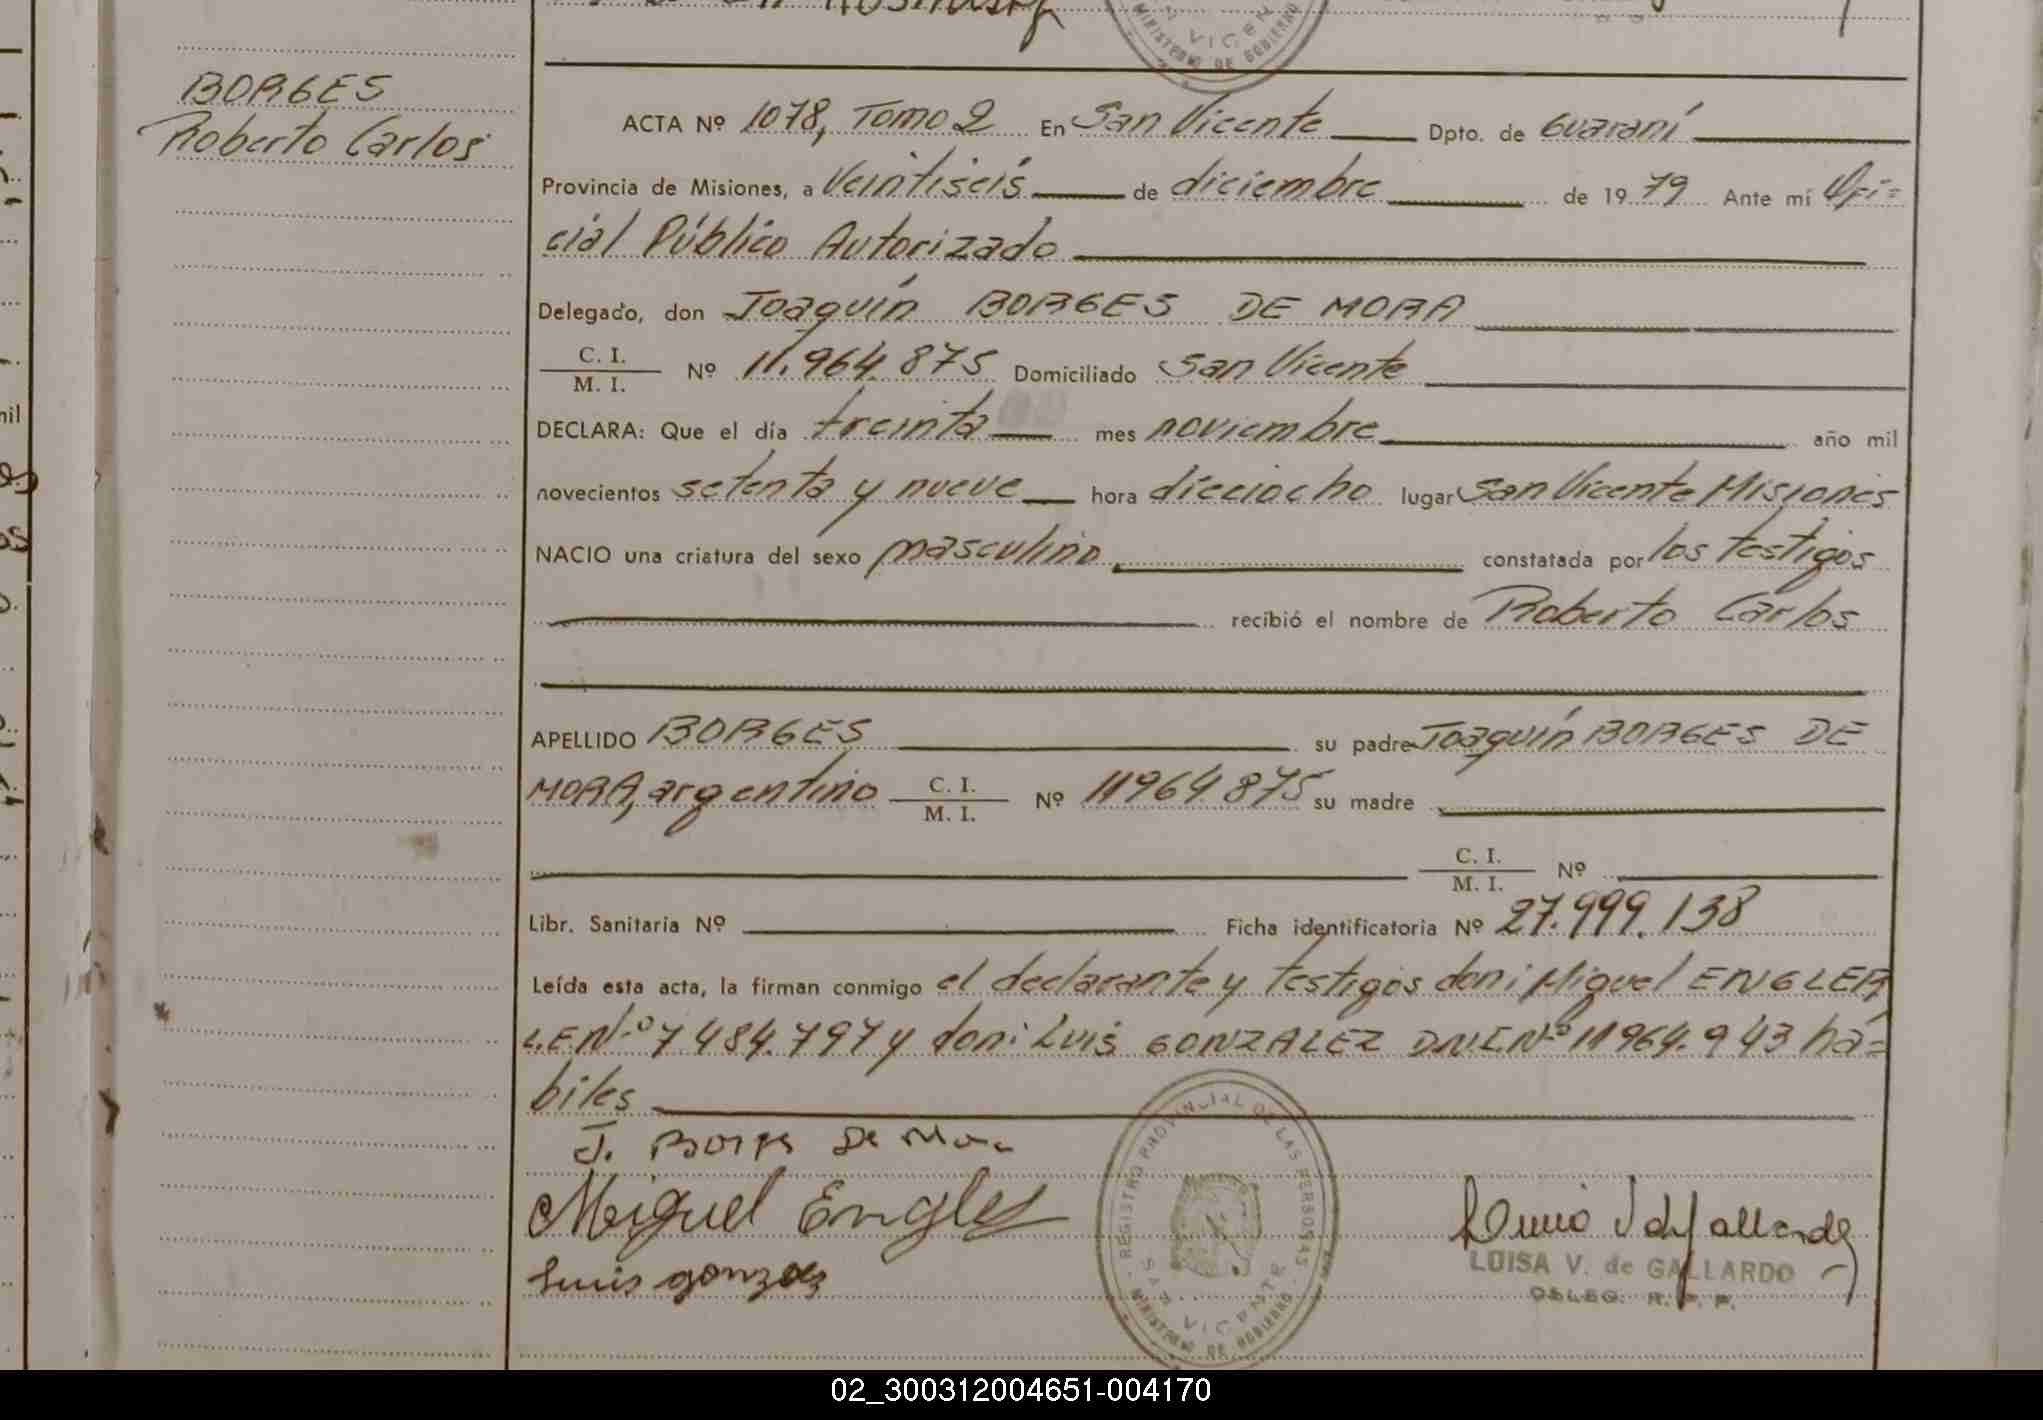 BORGES
Roberto Carlos
ACTA Nº 1078, Tomo 2 En San Vicente Dpto. de Guaraní
Provincia de Misiones, a Veintiseis de diciembre de 1979 Ante mí Ofi=
cial Público Autorizado
Delegado, don Joaquín BORGES DE MORA
C. I.
M. I. Nº 11.964.875 Domiciliado San Vicente
DECLARA: Que el día treinta mes noviembre año mil
novecientos setenta y nueve hora dieciocho lugar San Vicente Misiones
NACIO una criatura del sexo masculino constatada por los testigos
recibió el nombre de Roberto Carlos
APELLIDO BORGES su padre Joaquín BORGES DE
MORA, argentino C. I.
M. I. Nº 11964.875 su madre
C. I.
M. I. Nº
Libr. Sanitaria Nº Ficha identificatoria Nº 27.999.138
Leída esta acta, la firman conmigo el declarante y testigos don: Miguel ENGLER
L.E.Nº 7.484.797 y don: Luis GONZALEZ DNI Nº 11964.943 há=
biles
J. Borges De Mora
Miguel Engler
Luis gonzalez
REGISTRO PROVINCIAL DE LAS PERSONAS
SAN VICENTE
MINISTERIO DE GOBIERNO
LUISA V. de GALLARDO
DELEG. R. P. P.
02_300312004651-004170